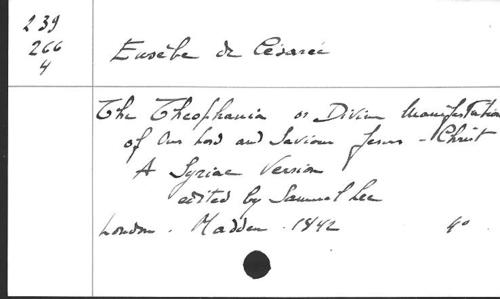 239
266
4
Eusèbe de Césarée
The Theophania or Divine Manifestation
of Our Lord and Saviour Jesus-Christ
A Syriac Version
edited by Samuel Lee
London. Madden. 1842 4°